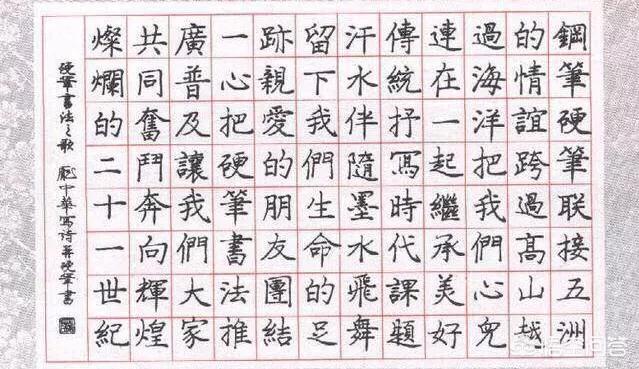 鋼筆硬筆聯接五洲
的情誼跨過髙山越
過海洋把我們心兒
連在一起繼承美好
傳統抒寫時代課題
汗水伴隨墨水飛舞
留下我們生命的足
跡親愛的朋友團結
一心把硬筆書法推
廣普及讓我們大家
共同奮鬥奔向輝煌
燦爛的二十一世紀
硬筆書法之歌 龐中華寫詩并硬筆書
悟空问答